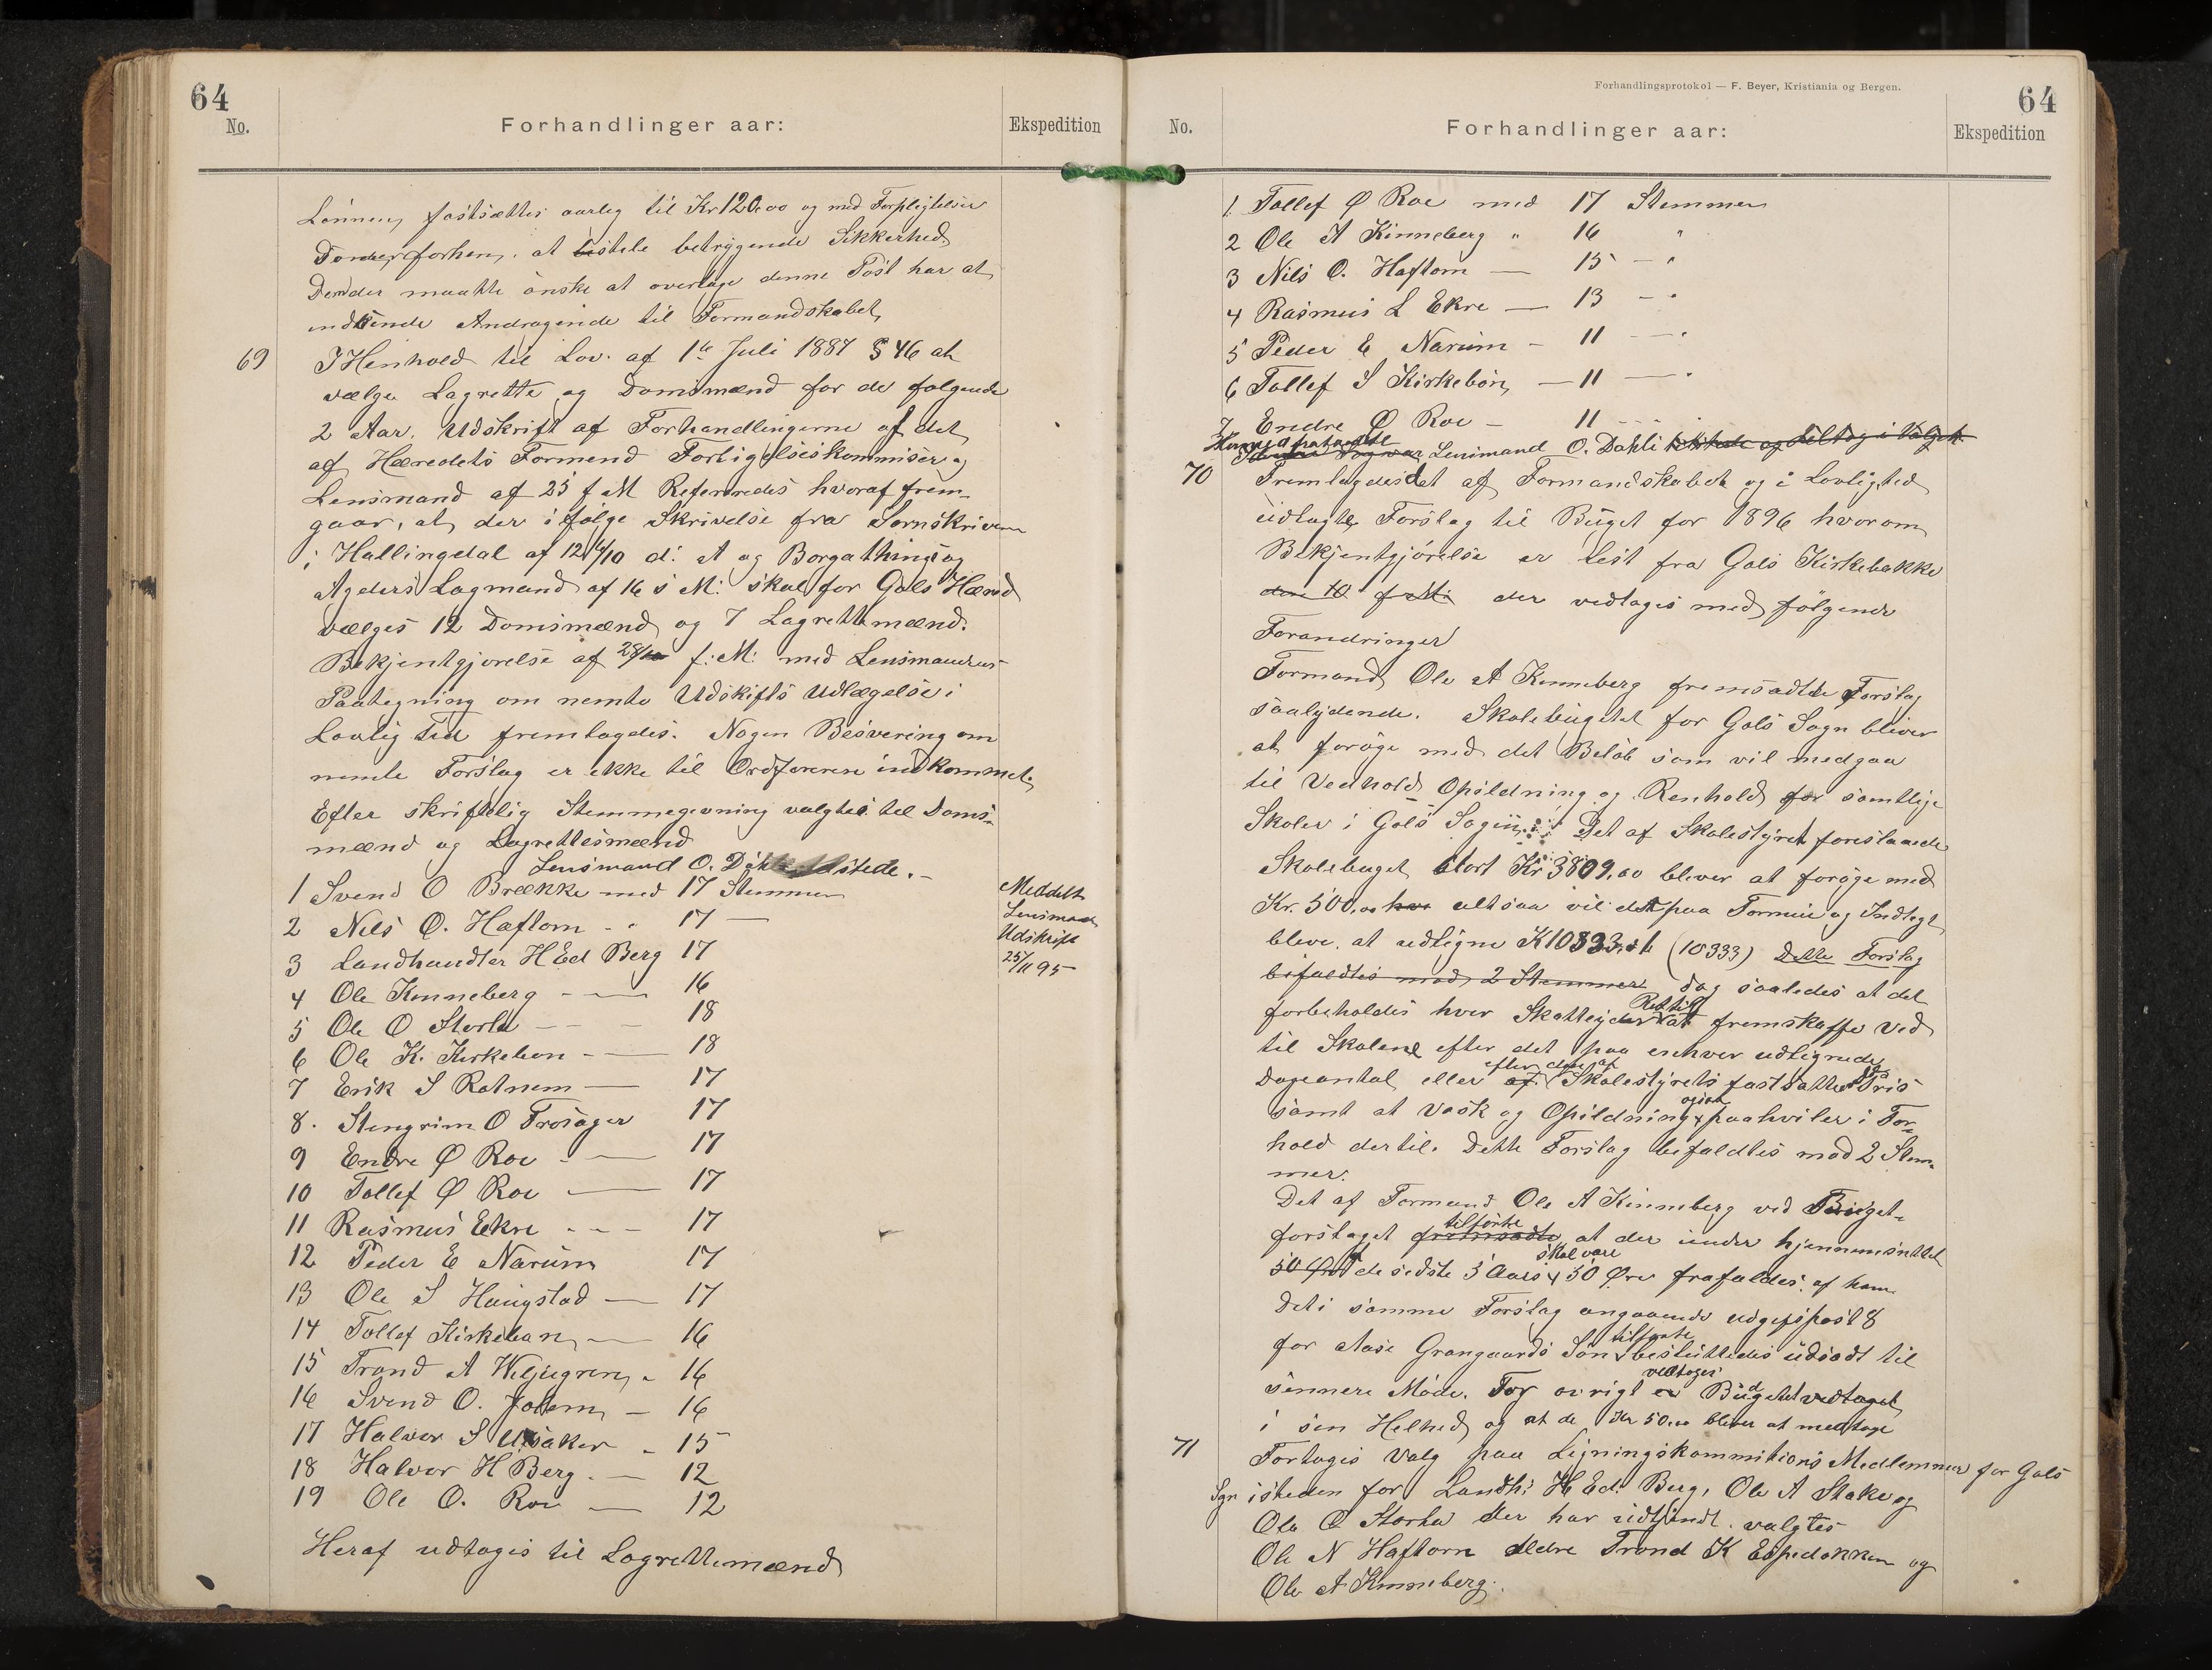 64
No.
Forhandlinger aar:
Ekspedition
Lönnen, fastsættes aarlig til Kr 120.00 og med Forplejtelser
forhen, at bestele betryggende Sikkerhed,
Dender maatte önske at overtage denne Post har at
indsende Andragende til Formandskabet,
69
I Henhold til Lov. af 1ste Juli 1887 § 46 at
vælge Lagrette og Domsmænd for de følgende
2 Aar. Udskrift af Forhandlingerne af det
af Hæredets Formend Forligelseskommiser og
Lensmand af 25 f M Refereredes hvoraf frem-
gaar, at der ifølge Skrivelse fra Sornskriveren
i Hallingdal af 12/10 d: A og Borgathings og
Agders Lagmand af 16 s M: skal for Gols Hæred
vælges 12 Domsmænd og 7 Lagrettemænd.
Bekjentgjørelse af 28/10 f: M: med Lensmandens
Paategning om nemte Udskifts Udlægelse i
Lovlig Tid fremlagdes. Nogen Besvering om
nemte Forslag er ikke til Ordføreren indkommet,
Efter skriftelig Stemmegivning valgtes til Doms-
mænd og Lagrettesmænd
Lensmand O. Dahli tilstede. -
1 Svend O Brække med 17 Stemmer
2 Nils O. Haftorn - " 17 —
3 Landhandler H Ed Berg 17
4 Ole Kinneberg - — 16
5 Ole O Storla — — — 18
6 Ole K. Kirkebøn - — 18
7 Erik S Rotnem — 17
8. Stengrim O Trøsager 17
9 Endre Ø Roe - — 17
10 Tollef Ø Roe — 17
11 Rasmus Ekre - - - 17
12 Peder E Narüm 17
13 Ole S Haugstad — 17
14 Tollef Kirkebøn, — 16
15 Trond A Wiljugrein, - 16
16 Svend O. Jotem, — 16
17 Halvor S Ulsaker - 15
18 Halvor H Berg. — 12
19 Ole O. Roe — 12
Heraf udtoges til Lagrettemænd
Meddelt
Lensmand
Udskrift
25/11 95
Forhandlingsprotokol — F. Beyer, Kristiania og Bergen.
64
No.
Forhandlinger aar:
Ekspedition
1. Tollef Ø Roe med 17 Stemmer
2 Ole A Kinneberg " 16 "
3 Nils O. Haftorn — 15 — "
4 Rasmus L Ekre — 13 — "
5 Peder E Narüm — 11 — "
6 Tollef S Kirkebön, — 11 — "
7. Endre Ø Roe — 11 - - -
Lensmand O. Dahli tilstede og deltog i Valget.
70
Fremlagdes det af Formandskabet og i Lovlighed
üdlagte Forslag til Büget for 1896 hvorom
Bekjentgjörelse er lest fra Gols Kirkebakke
den 10 f M: der vedtages med følgende
Forandringer
Formand, Ole A Kinneberg fremsadtde Forslag
saalydende. Skolebügetet for Gols Sogn bliver
at foröge med det Belöb som vil medgaa
til Vedhold, Opildning og Renhold for samtlige
Skoler i Gols Sogn. Det af Skolestyret foreslaaede
Skolebuget, stort Kr 3809,00 bliver at foröge med
Kr. 500,00 altsaa vil det paa Formue og Indtegt
blive at udligne K 10333.31 (10333) Dette Forslag
bifaldtes mod, 2 Stemmer dog saaledes at det
forbeholdes hver Skatteyder Ret til at fremskaffe Ved
til Skolene efter det paa enhver udlignede
Dageantal, eller efter den af Skolestyrets fastsatte Pris
samt at Vask og Opildning ogsaa paahviler i For-
hold dertil. Dette Forslag bifaldtes mod 2 Stem-
mer.
Det af Formand Ole A Kinneberg ved Büget-
forslaget fremsadte tilførte at der under hjennemsnittet
50 Øre de sidste 5 Aars skal være 50 Øre frafaldes af ham
Det i samme Forslag angaaende udgifspost 8
for Aase Grangaards Søn tilførte besluttedes üdsadt til
sennere Möde. For övrigt er vedtages Büdgetet vedtaget
i sin Helhed, og at de Kr 50,00 bliver at medtage
71
Fortoges Valg paa Ligningskommitions Medlemmer for Gols
Sgn isteden for Landh: H Ed. Berg, Ole A Stake og
Ole O Storla der har üdtjendt. valgtes
Ole N Haftorn ældre Trond K Espedokken og
Ole A Kinneberg.